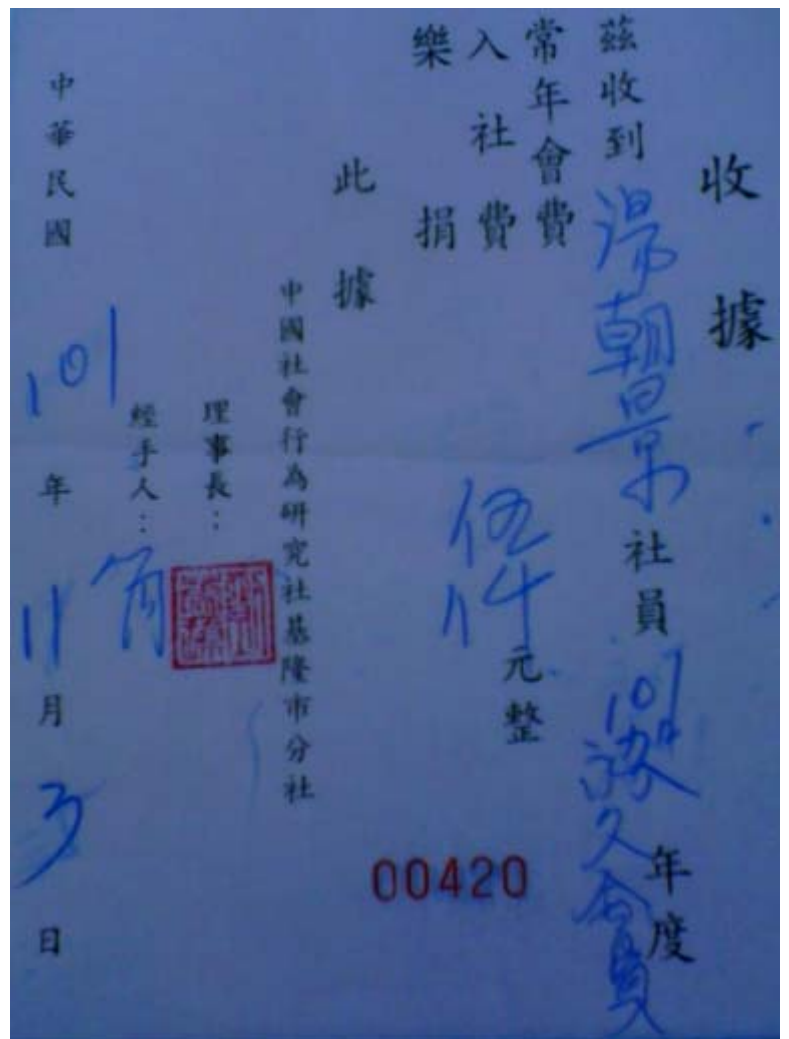 收據
茲收到湯朝景社員101年度
永久會員
常年會費
入社費
樂捐
伍仟元整
此據
中國社會行為研究社基隆市分社
理事長：
經手人：
中華民國101年11月3日
00420